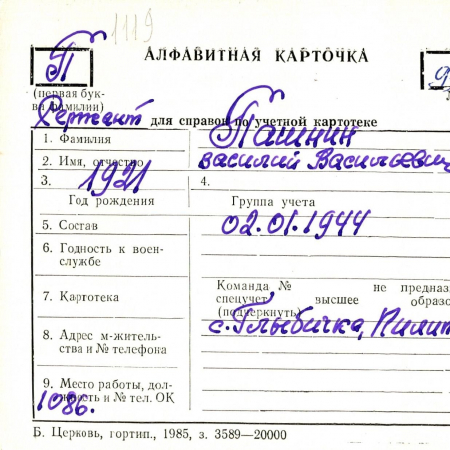 1119
АЛФАВИТНАЯ КАРТОЧКА
П
(первая бук-
ва фамилии)
Сержант для справок по учетной картотеке
1. Фамилия Пашнин
2. Имя, отчество Василий Васильевич
3. 1921 4.
Год рождения Группа учета
5. Состав 02.01.1944
6. Годность к воен-
службе
Команда № не предназ
7. Картотека спецучет высшее образо
(подчеркнуть)
8. Адрес м-житель- с. Глыбичка, Пилип
ства и № телефона
9. Место работы, дол-
жность и № тел. ОК
1086.
Б. Церковь, гортип., 1985, з. 3589—20000